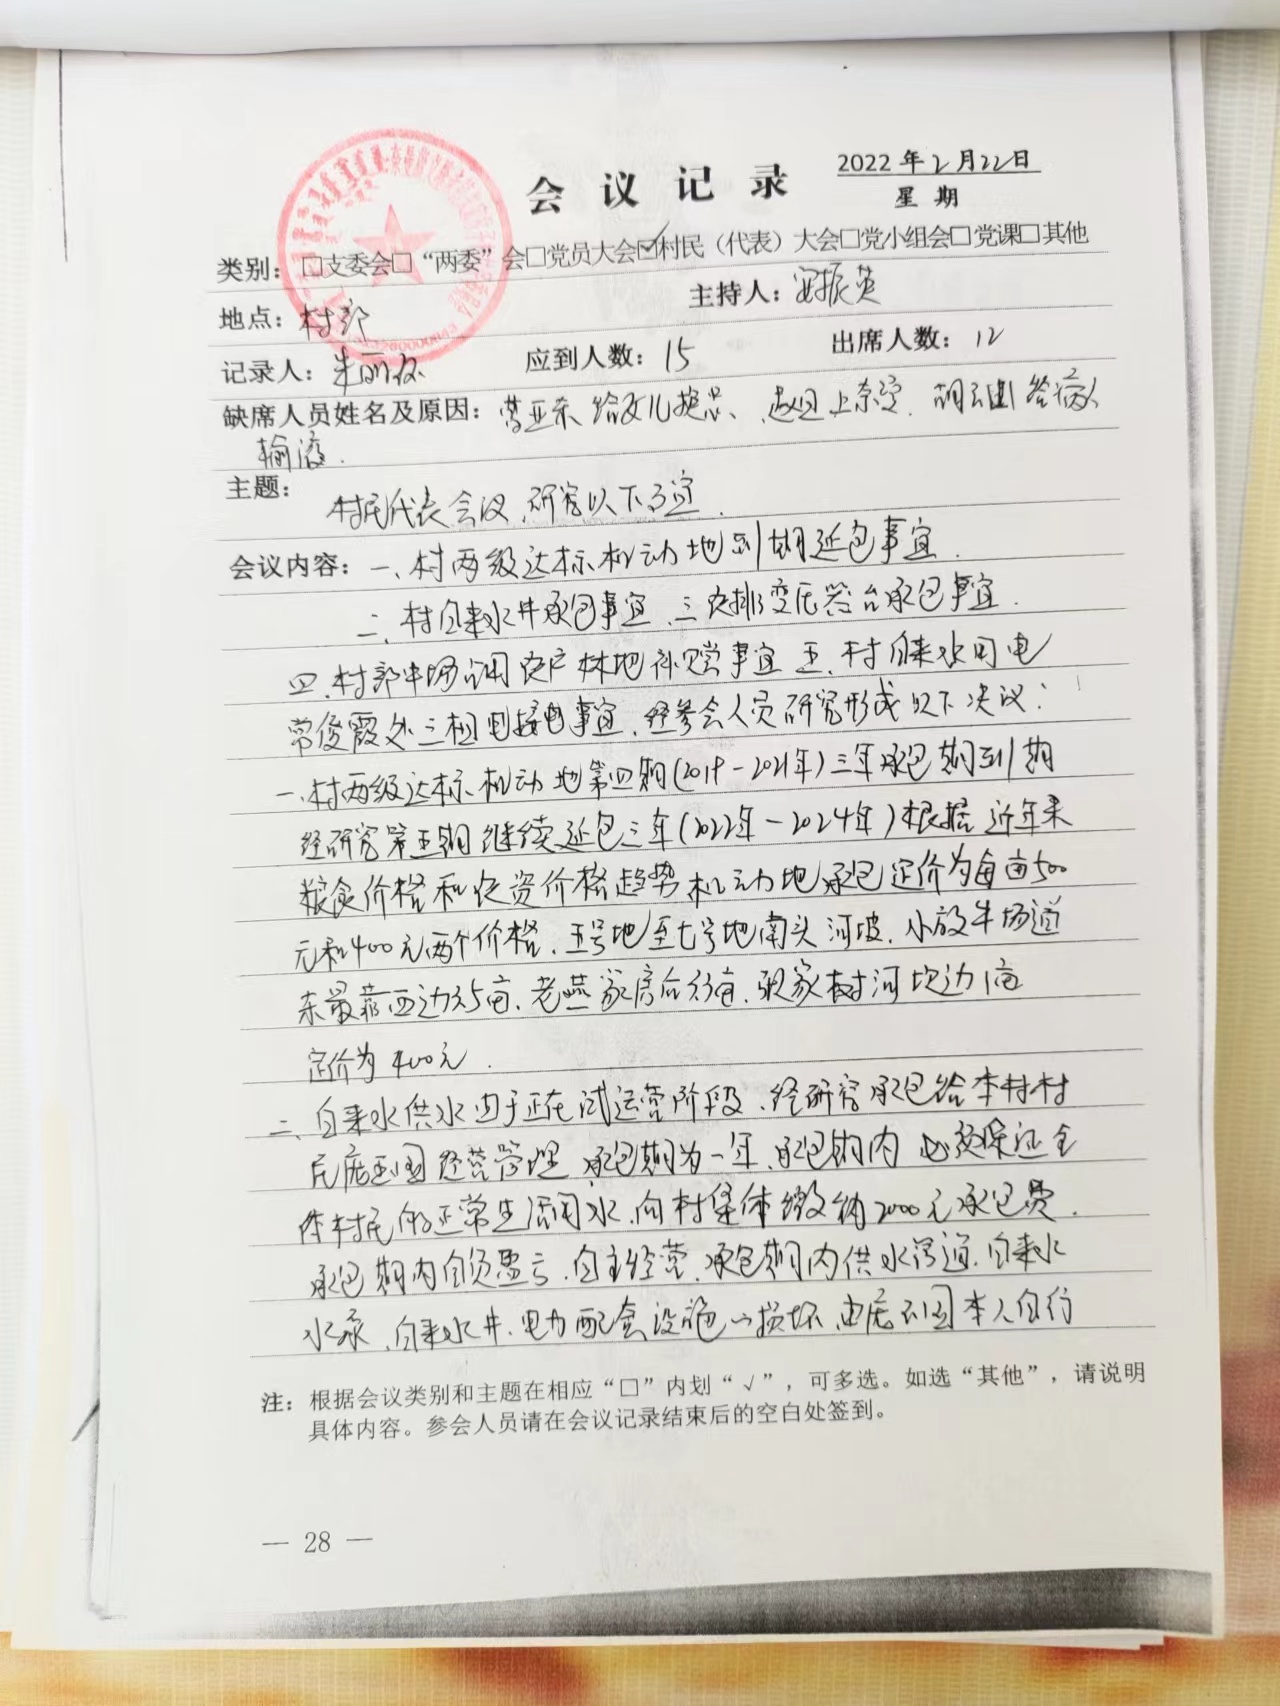 会议记录
2022年2月22日
星期
类别：□支委会□“两委”会□党员大会☑村民（代表）大会□党小组会□党课□其他
地点：村部 主持人：安振英
记录人：朱丽 应到人数：15 出席人数：12
缺席人员姓名及原因：亚东给女儿 、 上奈 . 给病人
输液.
主题：村民代表会议，研究以下事宜.
会议内容：一、村两级达标机动地到期延包事宜.
二、村自来水井承包事宜、三农排变压器台承包事宜.
四、村部牛场占用农户林地补偿事宜 五、村自来水用电
常俊霞处三相电接电事宜，经参会人员研究形成以下决议：
一、村两级达标机动地第四期(2019-2021年)三年承包期到期
经研究第五期继续延包三年(2022年-2024年)根据近年来
粮食价格和农资价格趋势机动地承包定价为每亩500
元和400元两个价格，五号地至七号地南头河坡，小放牛场道
东最靠西边35亩，老燕家房后 亩，耿家树河坎边1亩
定价为400元.
二、自来水供水由于正在试运营阶段，经研究承包给本村村
民庞 国经营管理 承包期为一年，承包期内必须保证全
体村民的正常生活用水，向村集体缴纳2000元承包费.
承包期内自负盈亏，自主经营，承包期内供水 道，自来水
水泵，自来水井，电力配套设施 损坏，由庞 国本人自行
注：根据会议类别和主题在相应“□”内划“√”，可多选。如选“其他”，请说明
具体内容。参会人员请在会议记录结束后的空白处签到。
— 28 —